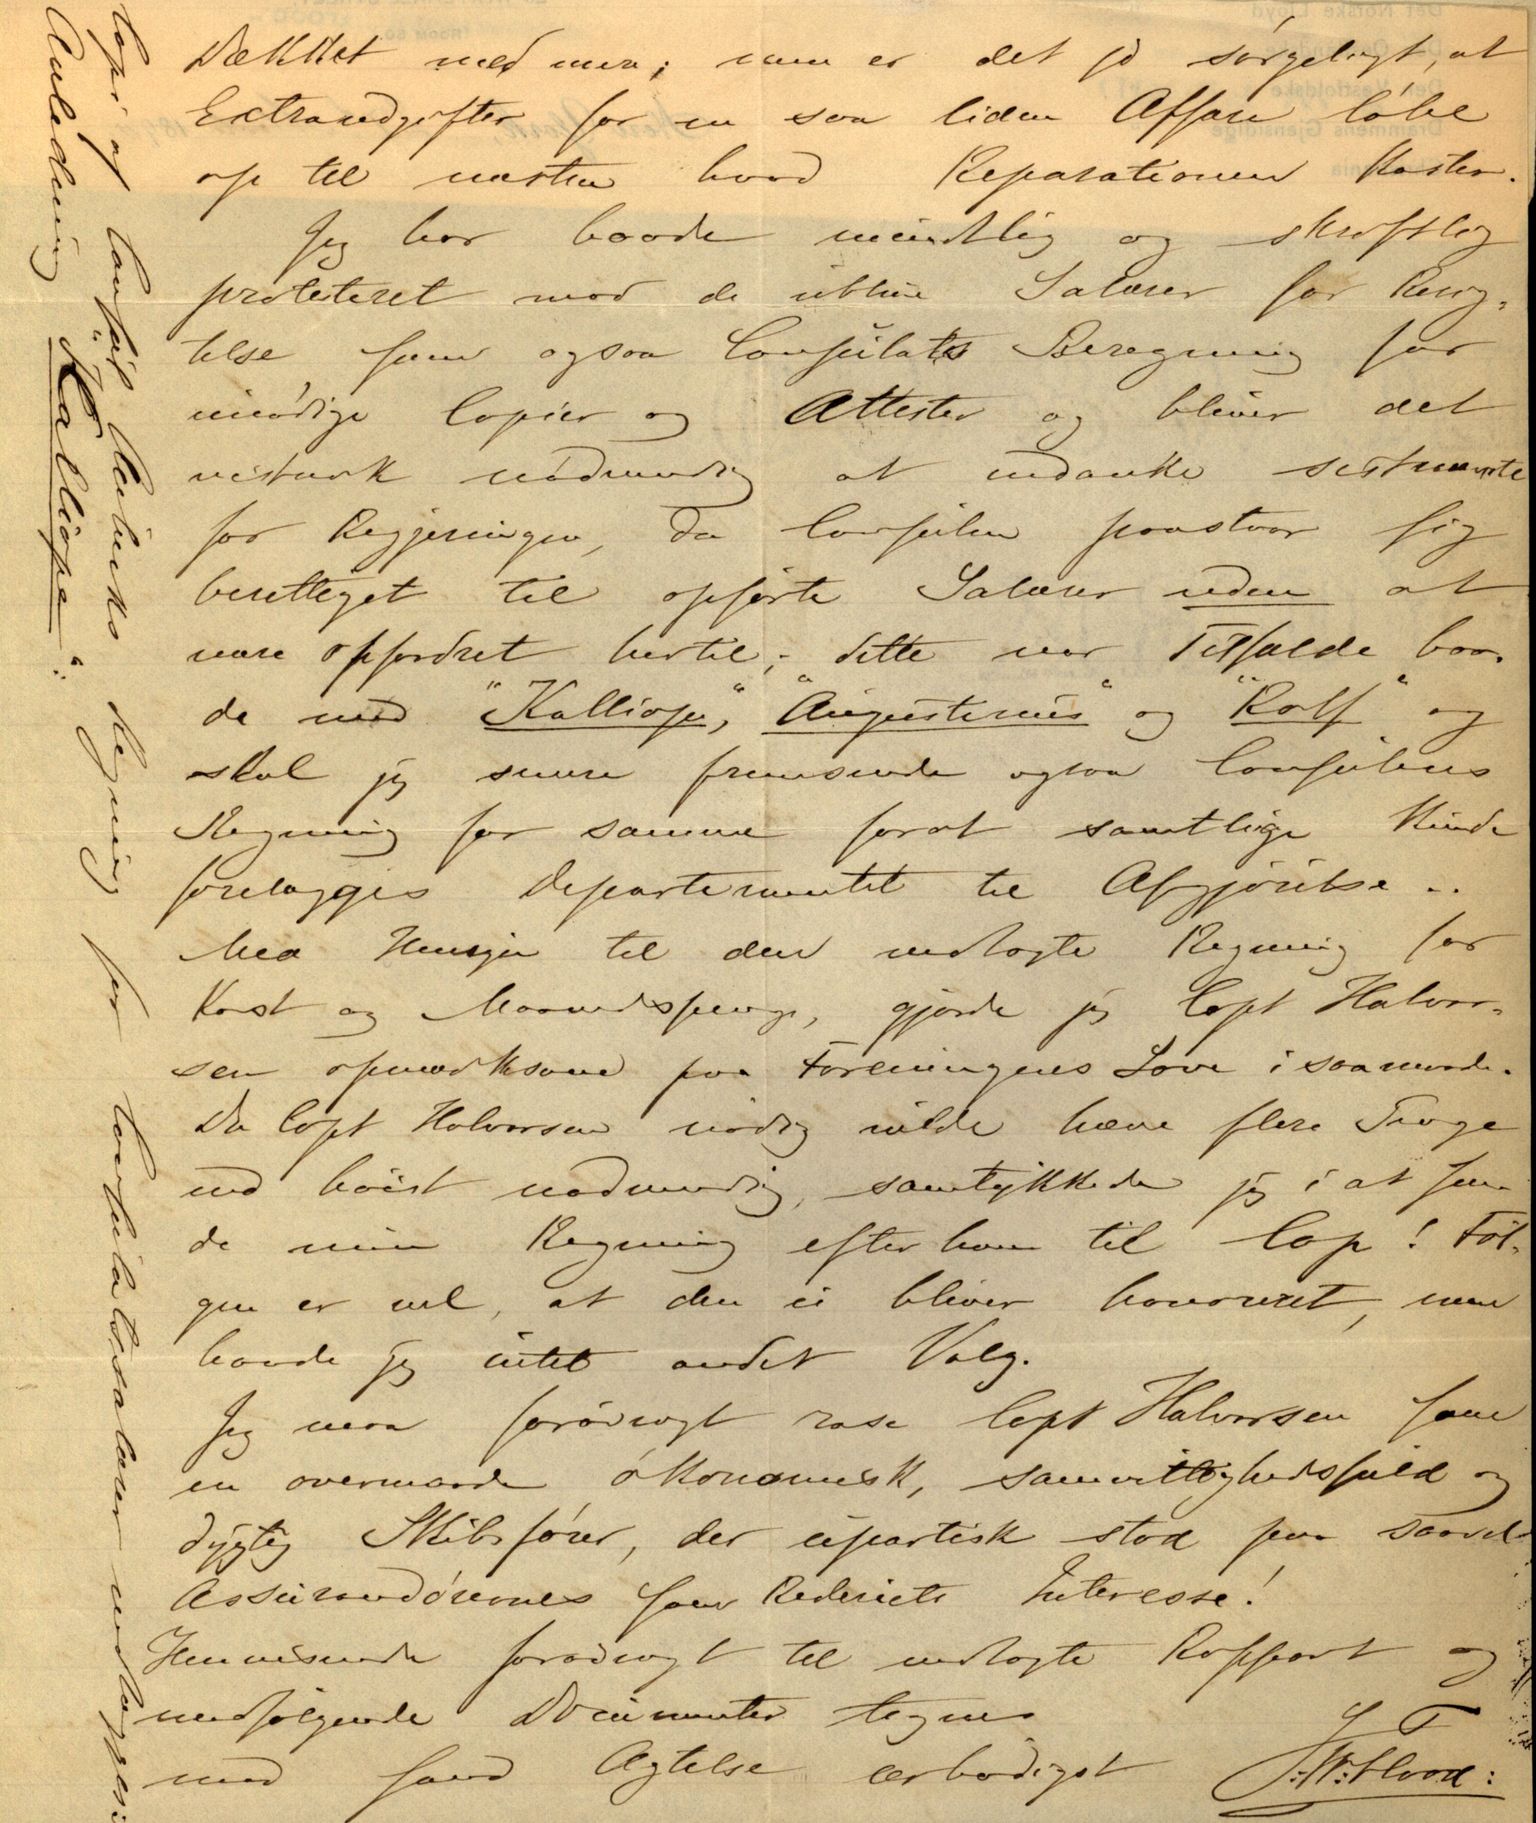 Dækket med mere; men er det jo sørgeligt, at
Extraudgifter for en saa liden Affære løbe
op til næsten hvad Reparationen koster.
Jeg har baade mündtlig og skriftlig
protesteret mod de ublüe Salærer for Besig-
telse som ogsaa Consülats Beregning for
ünödige Copier og Attester og bliver det
nødvendig at indanke sistnævnte
for Regjeringen, da Consülen paastaar sig
berettiget til opførte Salærer uden at
være opfordret hertil; dette var Tilfælde baa-
de med "Kalliope", "Augustinus" og "Rolf" og
skal jeg senere fremsende ogsaa Consülens
Regning for samme forat samtlige künde
forelægges Departementet til Afgjörelse ..
Med Hensyn til den vedlagte Regning for
Kost og Maanedspenge, gjorde jeg Capt Halvor-
sen opmærksom paa Foreningens Love i saamaade.
Da Capt Halvorsen nödig vilde hæve flere Penge
end höist nødvendig, samtykkede jeg i at sen-
de min Regning efter ham til Cop! Föl-
gen er vel, at den ei bliver honoreret, men
havde jeg intet andet Valg.
Jeg maa forøvrigt rose Capt Halvorsen som
en overmaade ökonomisk, samvittighedsfüld og
dygtig Skibsfører, der üpartisk stod paa saavel
Assürandörernes som Rederiets Interesse!
Henvisende forøvrigt til vedlagte Rapport og
medfølgende Documenter tegner
med sand Agtelse ærbödigst
Copi af Consül Regning for Consülatssalærer vedlægges:
Anledning "Kalliope".